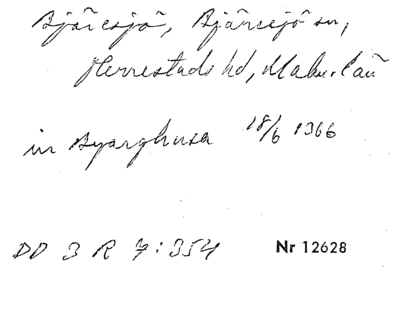 Bjäresjö, Bjäresjö sn,
Herrestads hd, Malm. län
in Byarghusa 18/6 1366
DD 3 R 7:354 Nr 12628